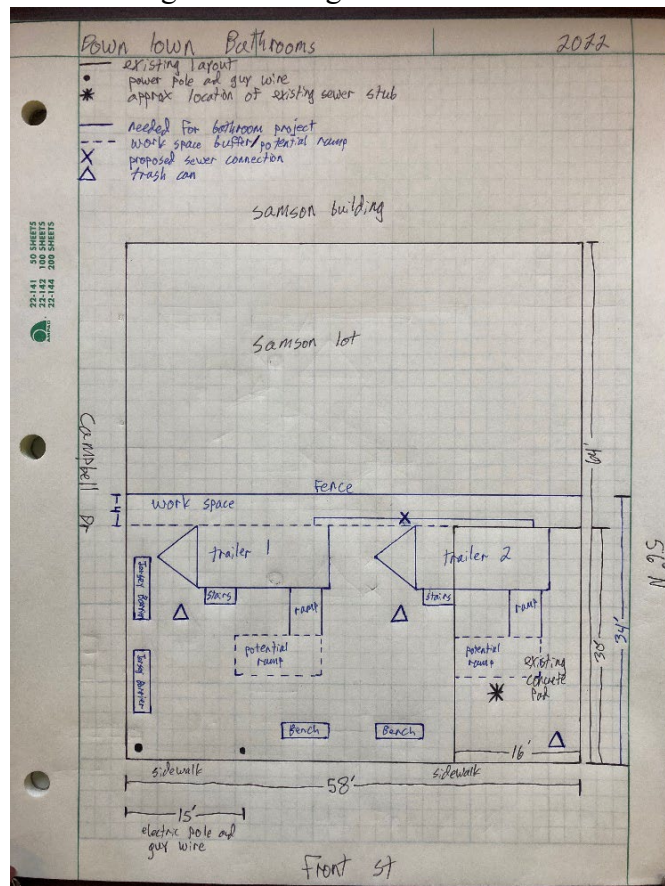 Down town Bathrooms 2022
existing layout
power pole ad guy wire
approx location of existing sewer stub
needed for bathroom project
work space buffer/potential ramp
proposed sewer connection
trash can
22-141 50 SHEETS
22-142 100 SHEETS
22-144 200 SHEETS
AMPAD
samson building
samson lot
64'
Campbell Dr
Fence
4'
work space
X
trailer 1
trailer 2
Stairs
ramp
stairs
ramp
potential ramp
potential ramp
existing concrete Pad
30'
34'
Bench
Bench
16'
sidewalk
sidewalk
58'
15'
electric pole ad
guy wire
Front st